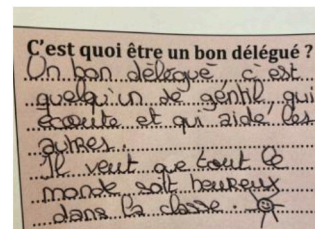 C'est quoi être un bon délégué ?
Un bon délégué, c'est
quelqu'un de gentil, qui
écoute et qui aide les
autres.
Il veut que tout le
monde soit heureux
dans la classe.